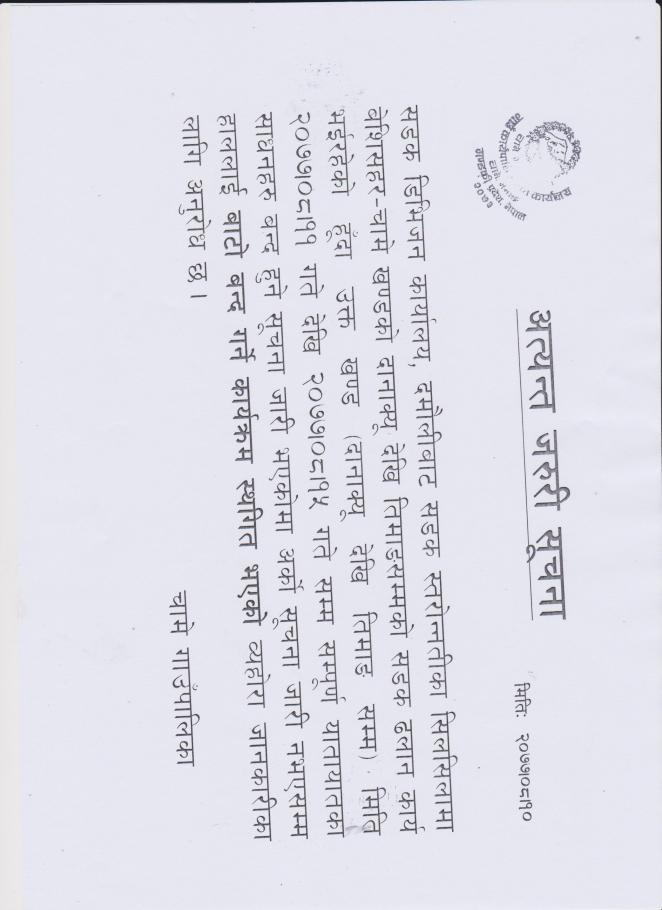 अत्यन्त जरुरी सूचना
मितिः २०७७।०८।१०
सडक डिभिजन कार्यालय, दमौलीबाट सडक स्तरोन्नतीका सिलसिलामा
बेशिसहर-चामे खण्डको दानाक्यु देखि तिमाङसम्मको सडक ढलान कार्य
भईरहेको हुँदा उक्त खण्ड (दानाक्यु देखि तिमाङ सम्म) मिति
२०७७।०८।११ गते देखि २०७७।०८।१५ गते सम्म सम्पूर्ण यातायातका
साधनहरु बन्द हुने सूचना जारी भएकोमा अर्को सूचना जारी नभएसम्म
हाललाई बाटो बन्द गर्ने कार्यक्रम स्थगित भएको व्यहोरा जानकारीका
लागि अनुरोध छ ।
चामे गाउंपालिका